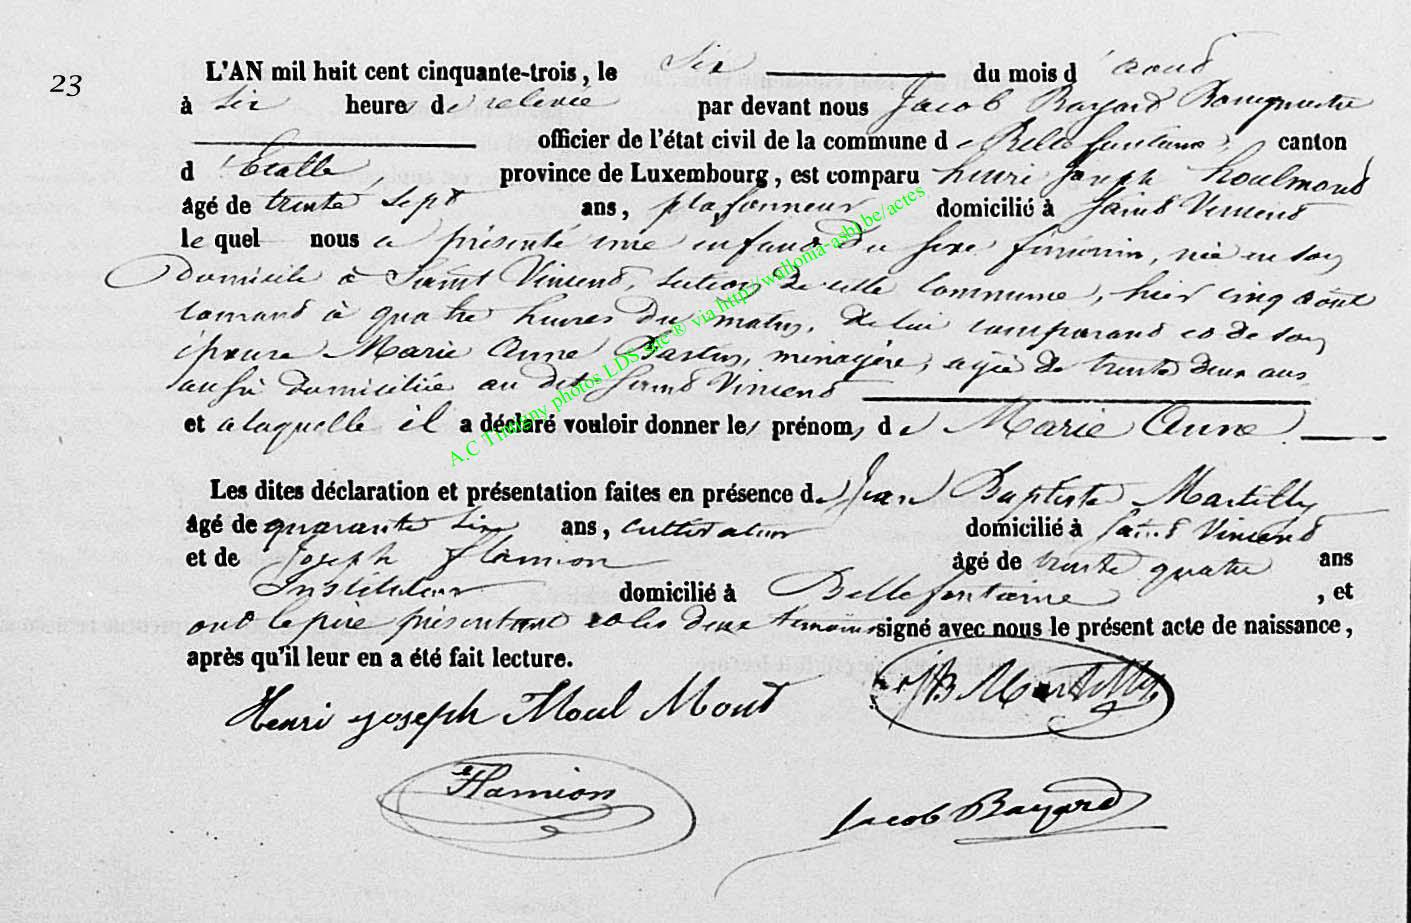 23
L'AN mil huit cent cinquante-trois, le Six du mois d'août
à Six heures de relevée par devant nous Jacob Bayard Bourgmestre
officier de l'état civil de la commune de Bellefontaine, canton
d'Etalle province de Luxembourg, est comparu henri Joseph houlmond
âgé de trente Sept ans, plafonneur domicilié à Saint Vincent
lequel nous a présenté une enfant du sexe féminin, née en son
Domicile à Saint Vincent, section de cette Commune, hier cinq août
courant à quatre heures du matin, de lui comparant et de son
épouse Marie Anne ménagère, agée de trente deux ans
aussi domiciliée au dit Saint Vincent
et a laquelle il a déclaré vouloir donner les prénoms de Marie Anne
Les dites déclaration et présentation faites en présence de Jean Baptiste Martilly
âgé de quarante six ans, cultivateur domicilié à Saint Vincent
et de Joseph flamion âgé de trente quatre ans
Instituteur domicilié à Bellefontaine, et
ont le père présentant et les deux témoins signé avec nous le présent acte de naissance,
après qu'il leur en a été fait lecture.
Henri Joseph Houl Mont JB Martilly
Flamion
Jacob Bayard
A.C Tintigny photos LDS site ® via http://wallonia-asbl.be/actes